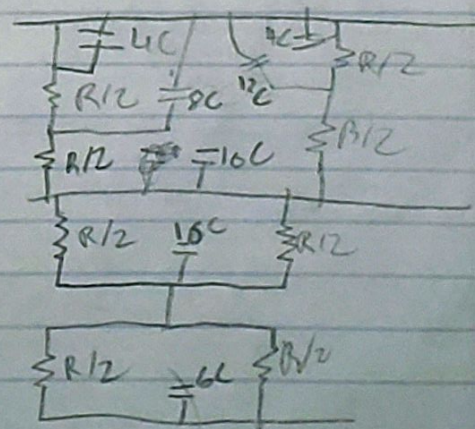 4C 4C R/2
R/2 8C 12C
R/2 10C R/2
R/2 10C R/2
R/2 6C R/2